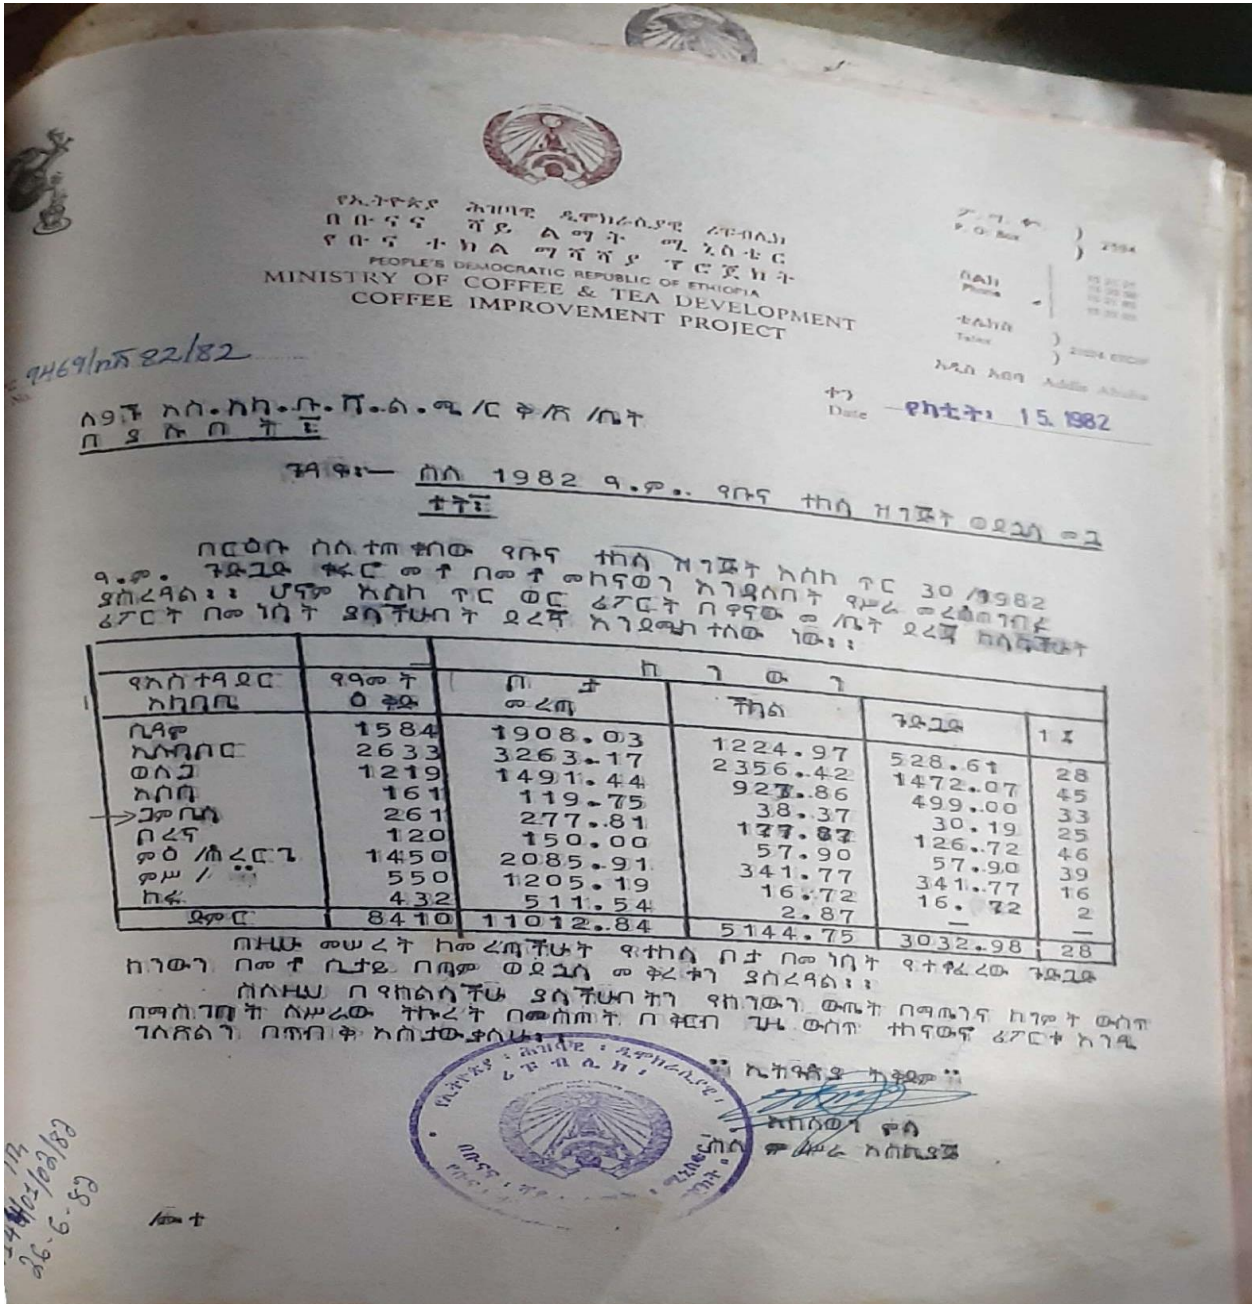 የኢትዮጵያ ሕዝባዊ ዲሞክራሲያዊ ሪፐብሊክ
በቡናና ሻይ ልማት ሚኒስቴር
የቡና ተክል ማሻሻያ ፕሮጀክት
PEOPLE'S DEMOCRATIC REPUBLIC OF ETHIOPIA
MINISTRY OF COFFEE & TEA DEVELOPMENT
COFFEE IMPROVEMENT PROJECT
ፖ.ሣ.ቍ. ) 2594
P. O. Box )
ስልክ
Phone
ቴሌክስ )
Telex )
አዲስ አበባ Addis Ababa
82/82
ቀን
Date የካቲት፡ 15. 1982
በያሉበት፤
ጉዳዩ፡— ስለ 1982 ዓ.ም. የቡና ተክል ዝግጅት ወደኋላ መጎ
ተት፤
በርዕሱ ስለተጠቀሰው የቡና ተከላ ዝግጅት እስከ ጥር 30/1982
ዓ.ም. ጉድጓድ ቁፋሮ መቶ በመቶ መከናወን እንዳለበት የሥራ መረሀግብሩ
ያስረዳል፡፡ ሆኖም እስከ ጥር ወር ሪፖርት በዋናው መ/ቤት ደረጃ ከላካችሁት
ሪፖርት በመነሳት ያላችሁበት ደረጃ እንደሚከተለው ነው፡፡
ክንውን
የአስተዳደር የዓመት ቦታ
አካባቢ ዕቅድ መረጣ ችካል ጉድጓድ 1 %
ሲዳሞ 1584 1908.03 1224.97 528.61 28
ኢሉባቦር 2633 3263.17 2356.42 1472.07 45
ወለጋ 1219 1491.44 927.86 499.00 33
አሶሳ 161 119.75 38.37 30.19 25
ጋምቤላ 261 277.81 177.87 126.72 46
ቦረና 120 150.00 57.90 57.90 39
ምዕ/ሐረርጌ 1450 2085.91 341.77 341.77 16
ምሥ/ " 550 1205.19 16.72 16.72 2
ከፋ 432 511.54 2.87 — —
ድምር 8410 11012.84 5144.75 3032.98 28
በዚሁ መሠረት ከመረጣችሁት የተከላ ቦታ በመነሳት የተቆፈረው ጉድጓድ
ክንውን በመቶ ሲታይ በጣም ወደኋላ መቅረቱን ያስረዳል፡፡
ስለዚህ በየክልላችሁ ያላችሁበትን የክንውን ውጤት በማጤንና ከግምት ውስጥ
በማስገባት ለሥራው ትኩረት በመስጠት በቅርብ ጊዜ ውስጥ ተከናውኖ ሪፖርቱ እንዲ
ገለጽልን በጥብቅ አስታውቃለሁ፡፡
" ኢትዮጵያ ትቅደም "
የኢትዮጵያ፡ ሕዝባዊ፡ ዲሞክራሲያዊ፡
ሪፐብሊክ፡
26-6-82